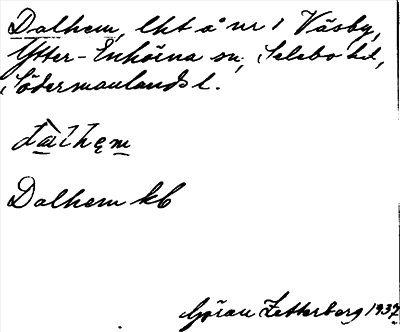 Dalhem, lht å nr 1 Väsby,
Ytter-Enhörna sn, Selebo hd,
Södermanlands l.
dalhem
Dalhem kb
Göran Zetterberg 1937